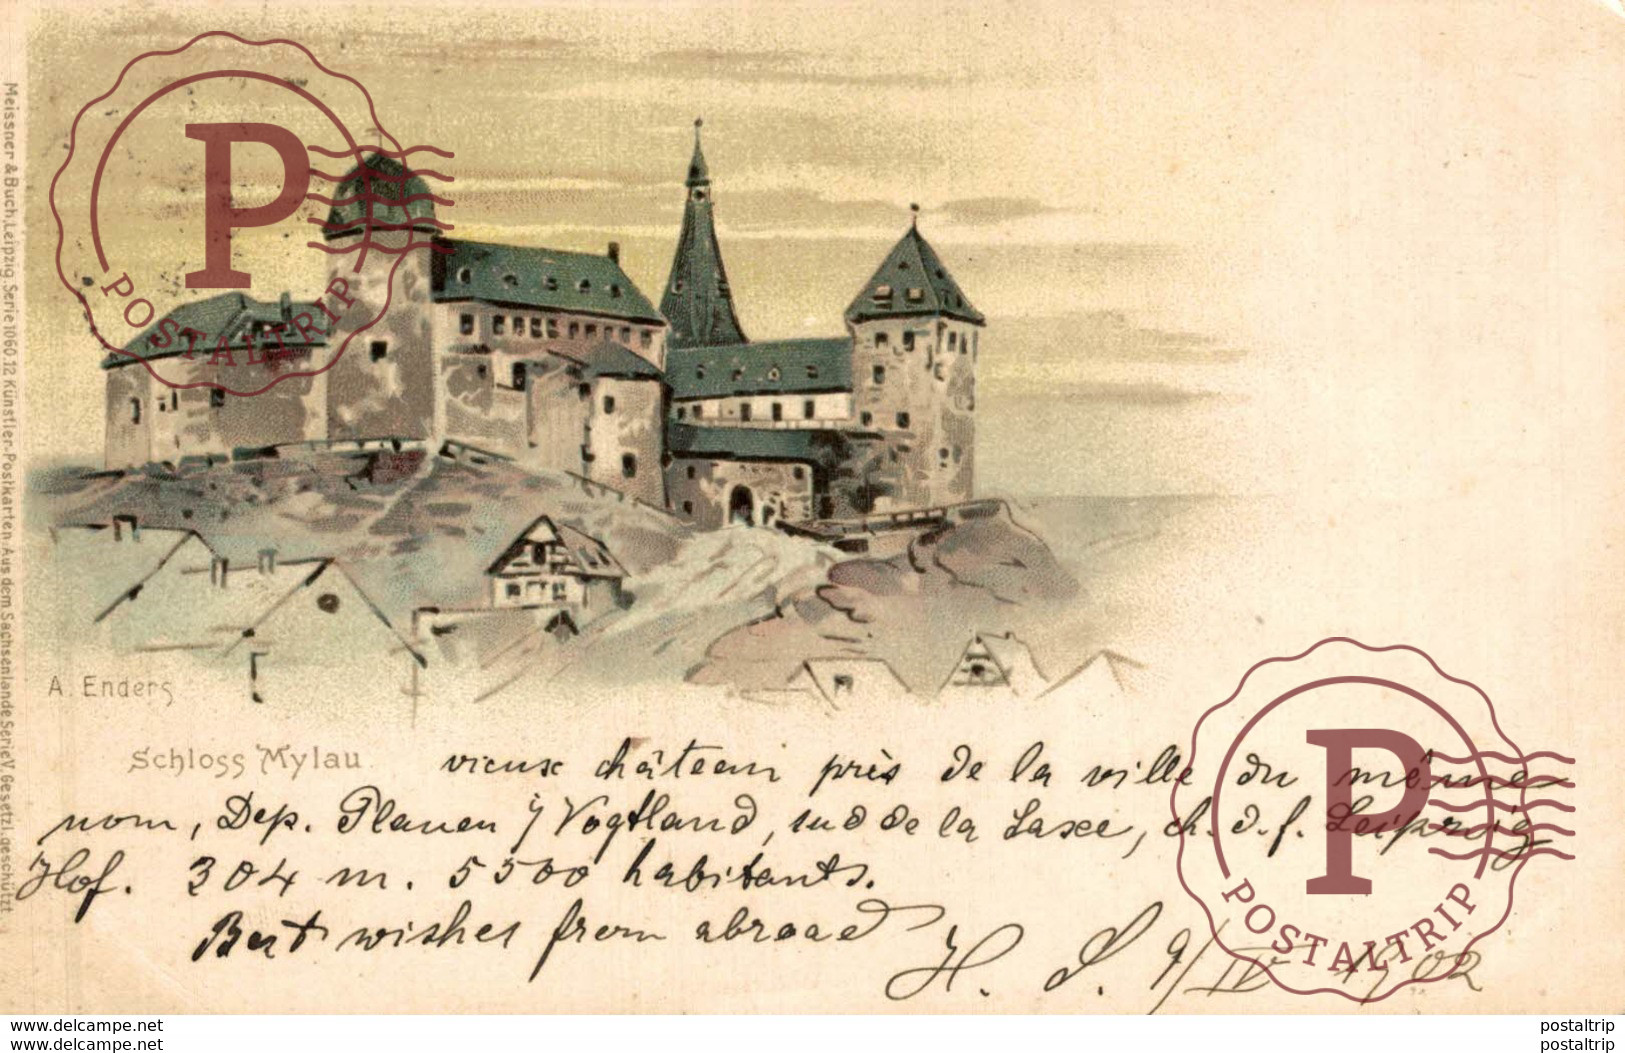 Meissner & Buch, Leipzig. Serie 1060.12 Künstler-Postkarten Aus dem Sachsenlande Serie V. Gesetzl. geschützt
P
POSTALTRIP
A. Enders
Schloss Mylau
vieux château près de la ville du même
nom, Dep. Plauen i/ Vogtland, sud de la Saxe, ch. d. f. Leipzig
Hof. 304 m. 5500 habitants.
Best wishes from abroad
H. S. 9/IV 1902
P
POSTALTRIP
www.delcampe.net
www.delcampe.net
postaltrip
postaltrip